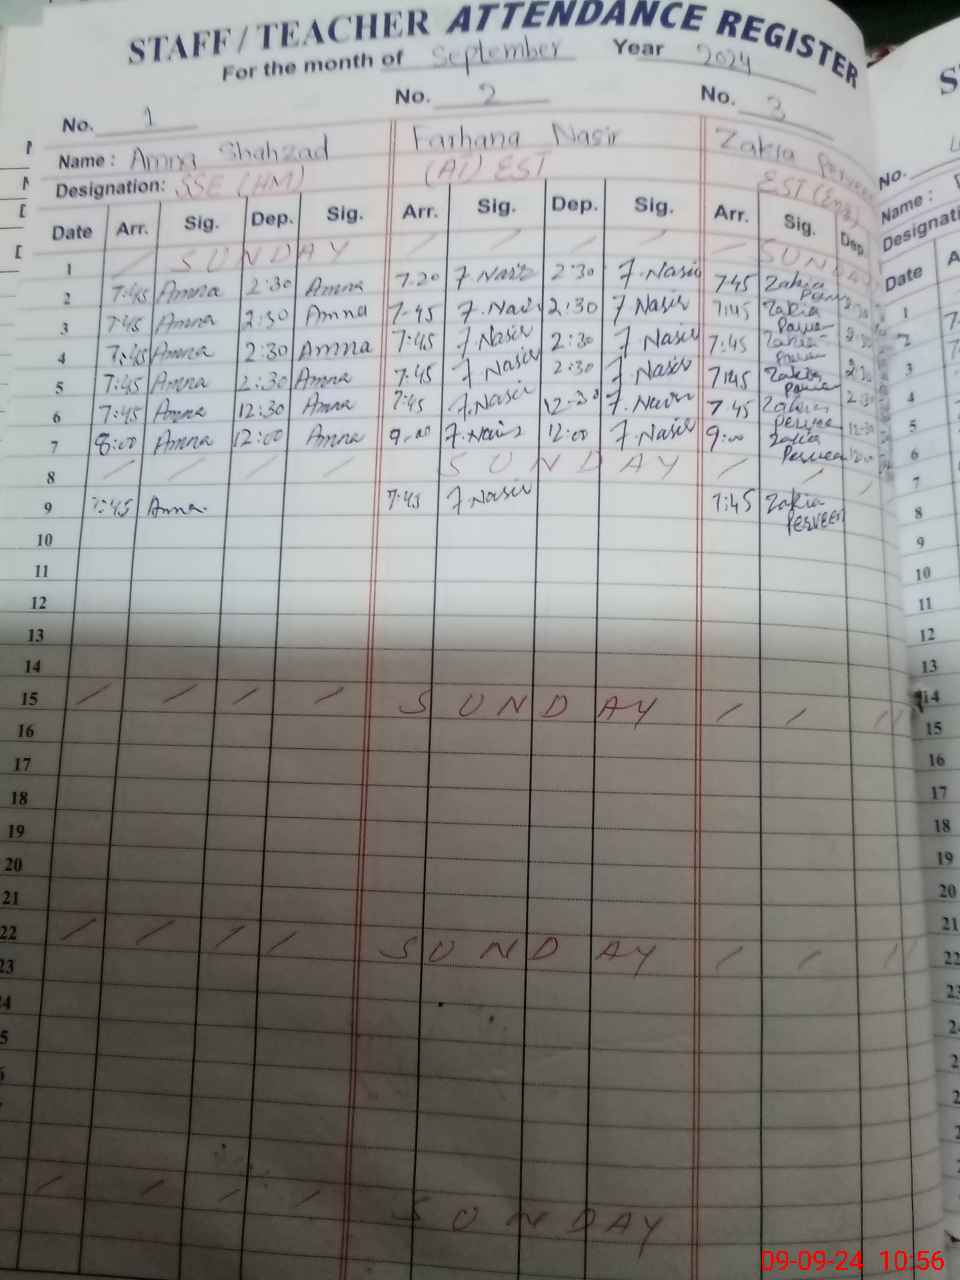 STAFF/TEACHER ATTENDANCE REGISTER
For the month of September Year 2024
No. 1 No. 2 No. 3
Name: Amna Shahzad Farhana Nasir Zakia Perveen
Designation: SSE (HM) (AI) EST EST (Eng)
Date Arr. Sig. Dep. Sig. Arr. Sig. Dep. Sig. Arr. Sig. Dep
1 SUNDAY SUNDAY
2 7:45 Amna 2:30 Amna 7.20 F.Nasir 2:30 F.Nasir 745 Zakia
3 7:45 Amna 2:30 Amna 7-45 F.Nasir 2:30 F Nasir 7:45 Zakia
4 7:45 Amna 2:30 Amna 7:45 F.Nasir 2:30 F.Nasir 7:45 Zakia
5 7:45 Amna 2:30 Amna 7:45 F.Nasir 2:30 F.Nasir 7:45 Zakia
6 7:45 Amna 12:30 Amna 7:45 F.Nasir 12-30 F.Nasir 7 45 Zakia Perveen
7 8:00 Amna 12:00 Amna 9:00 F.Nasir 12:00 F.Nasir 9:00 Zakia Perveen
8 SUNDAY
9 7:45 Amna 7:45 F.Nasir 7:45 Zakia Perveen
10
11
12
13
14
15 SUNDAY
16
17
18
19
20
21
22 SUNDAY
23
SUNDAY
No.
Name:
Date
1
2
3
4
5
6
7
8
9
10
11
12
13
14
15
16
17
18
19
20
21
22
09-09-24 10:56